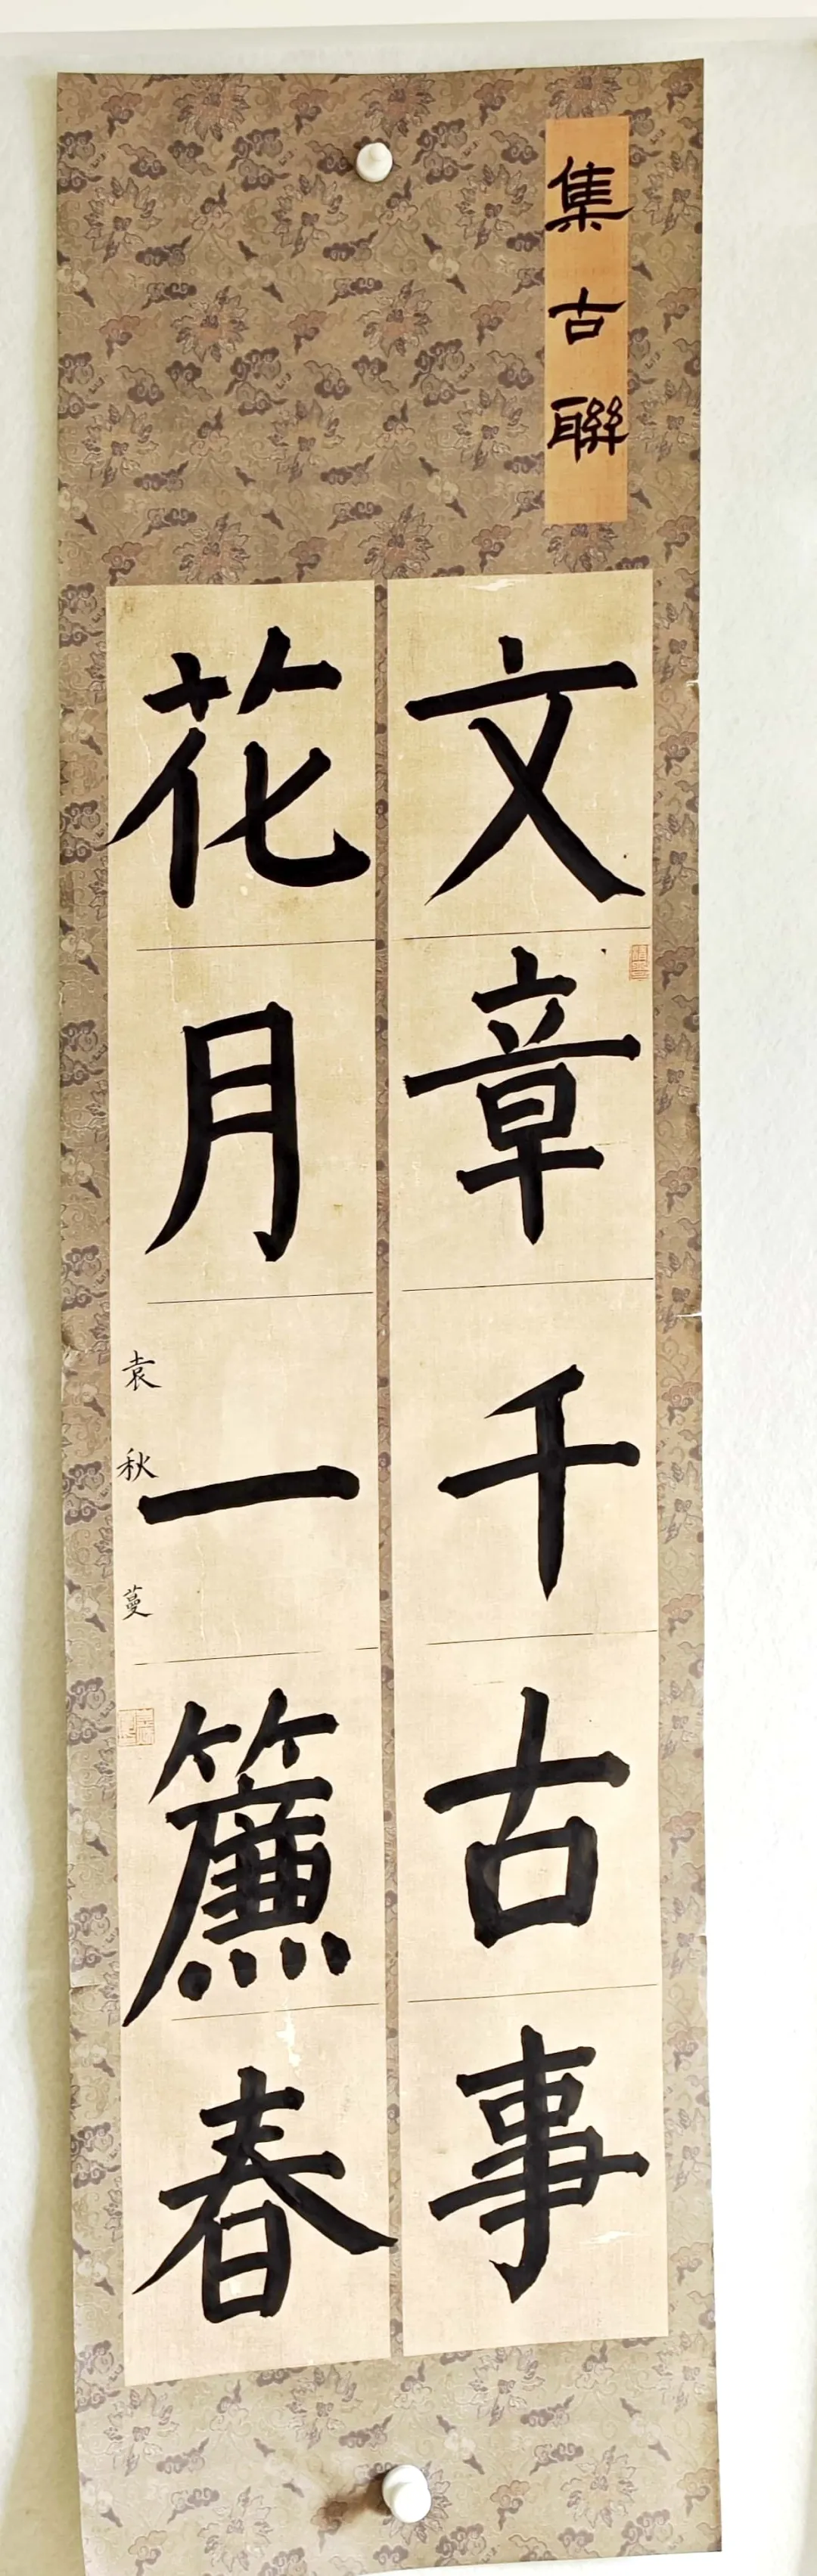 集古聯
文章千古事
花月一簾春
袁秋蔓